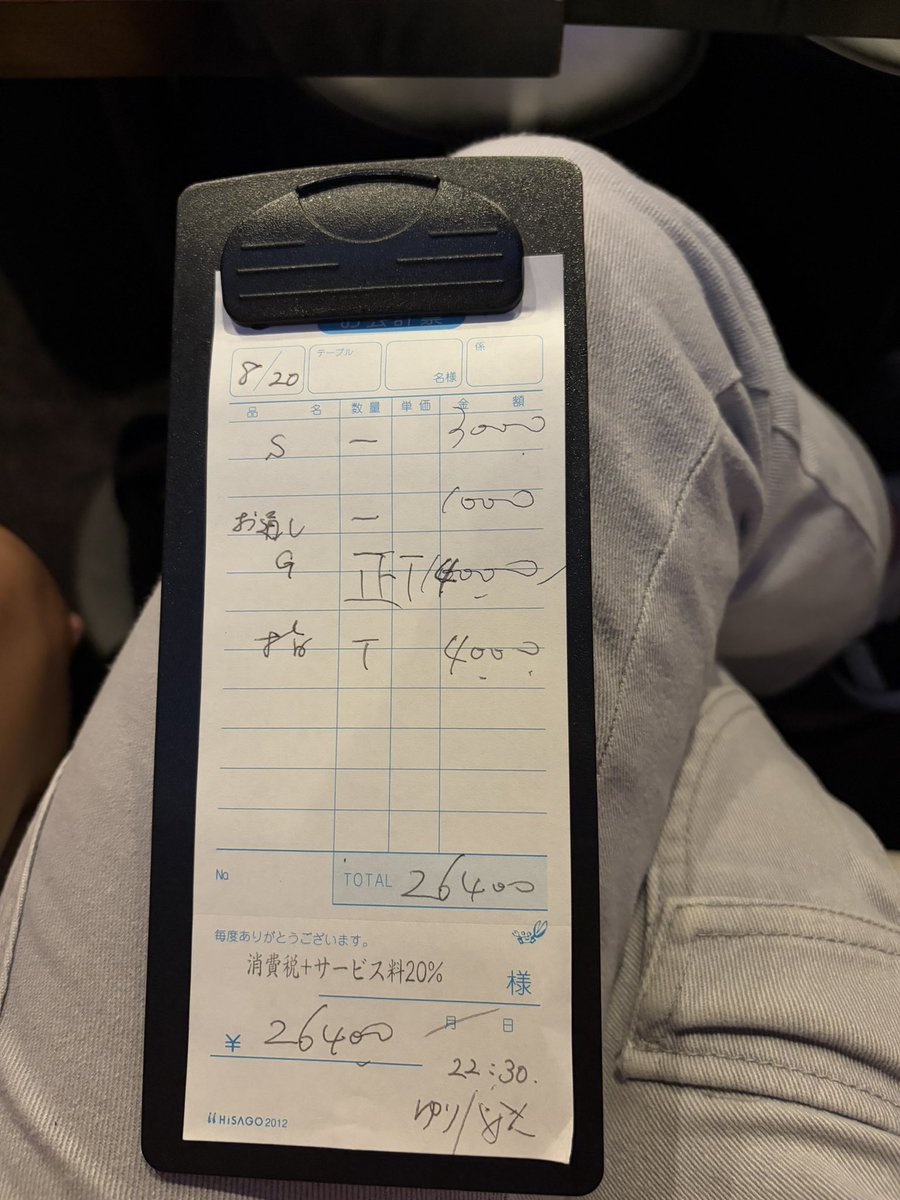 8/20 テーブル 名様 係
品名 数量 単価 金額
S 一 3000
お通し 一 1000
G 正T 14000
T 4000
No TOTAL 26400
毎度ありがとうございます。
消費税+サービス料20% 様
¥ 26400 月 日
22:30.
ゆり/
HiSAGO 2012